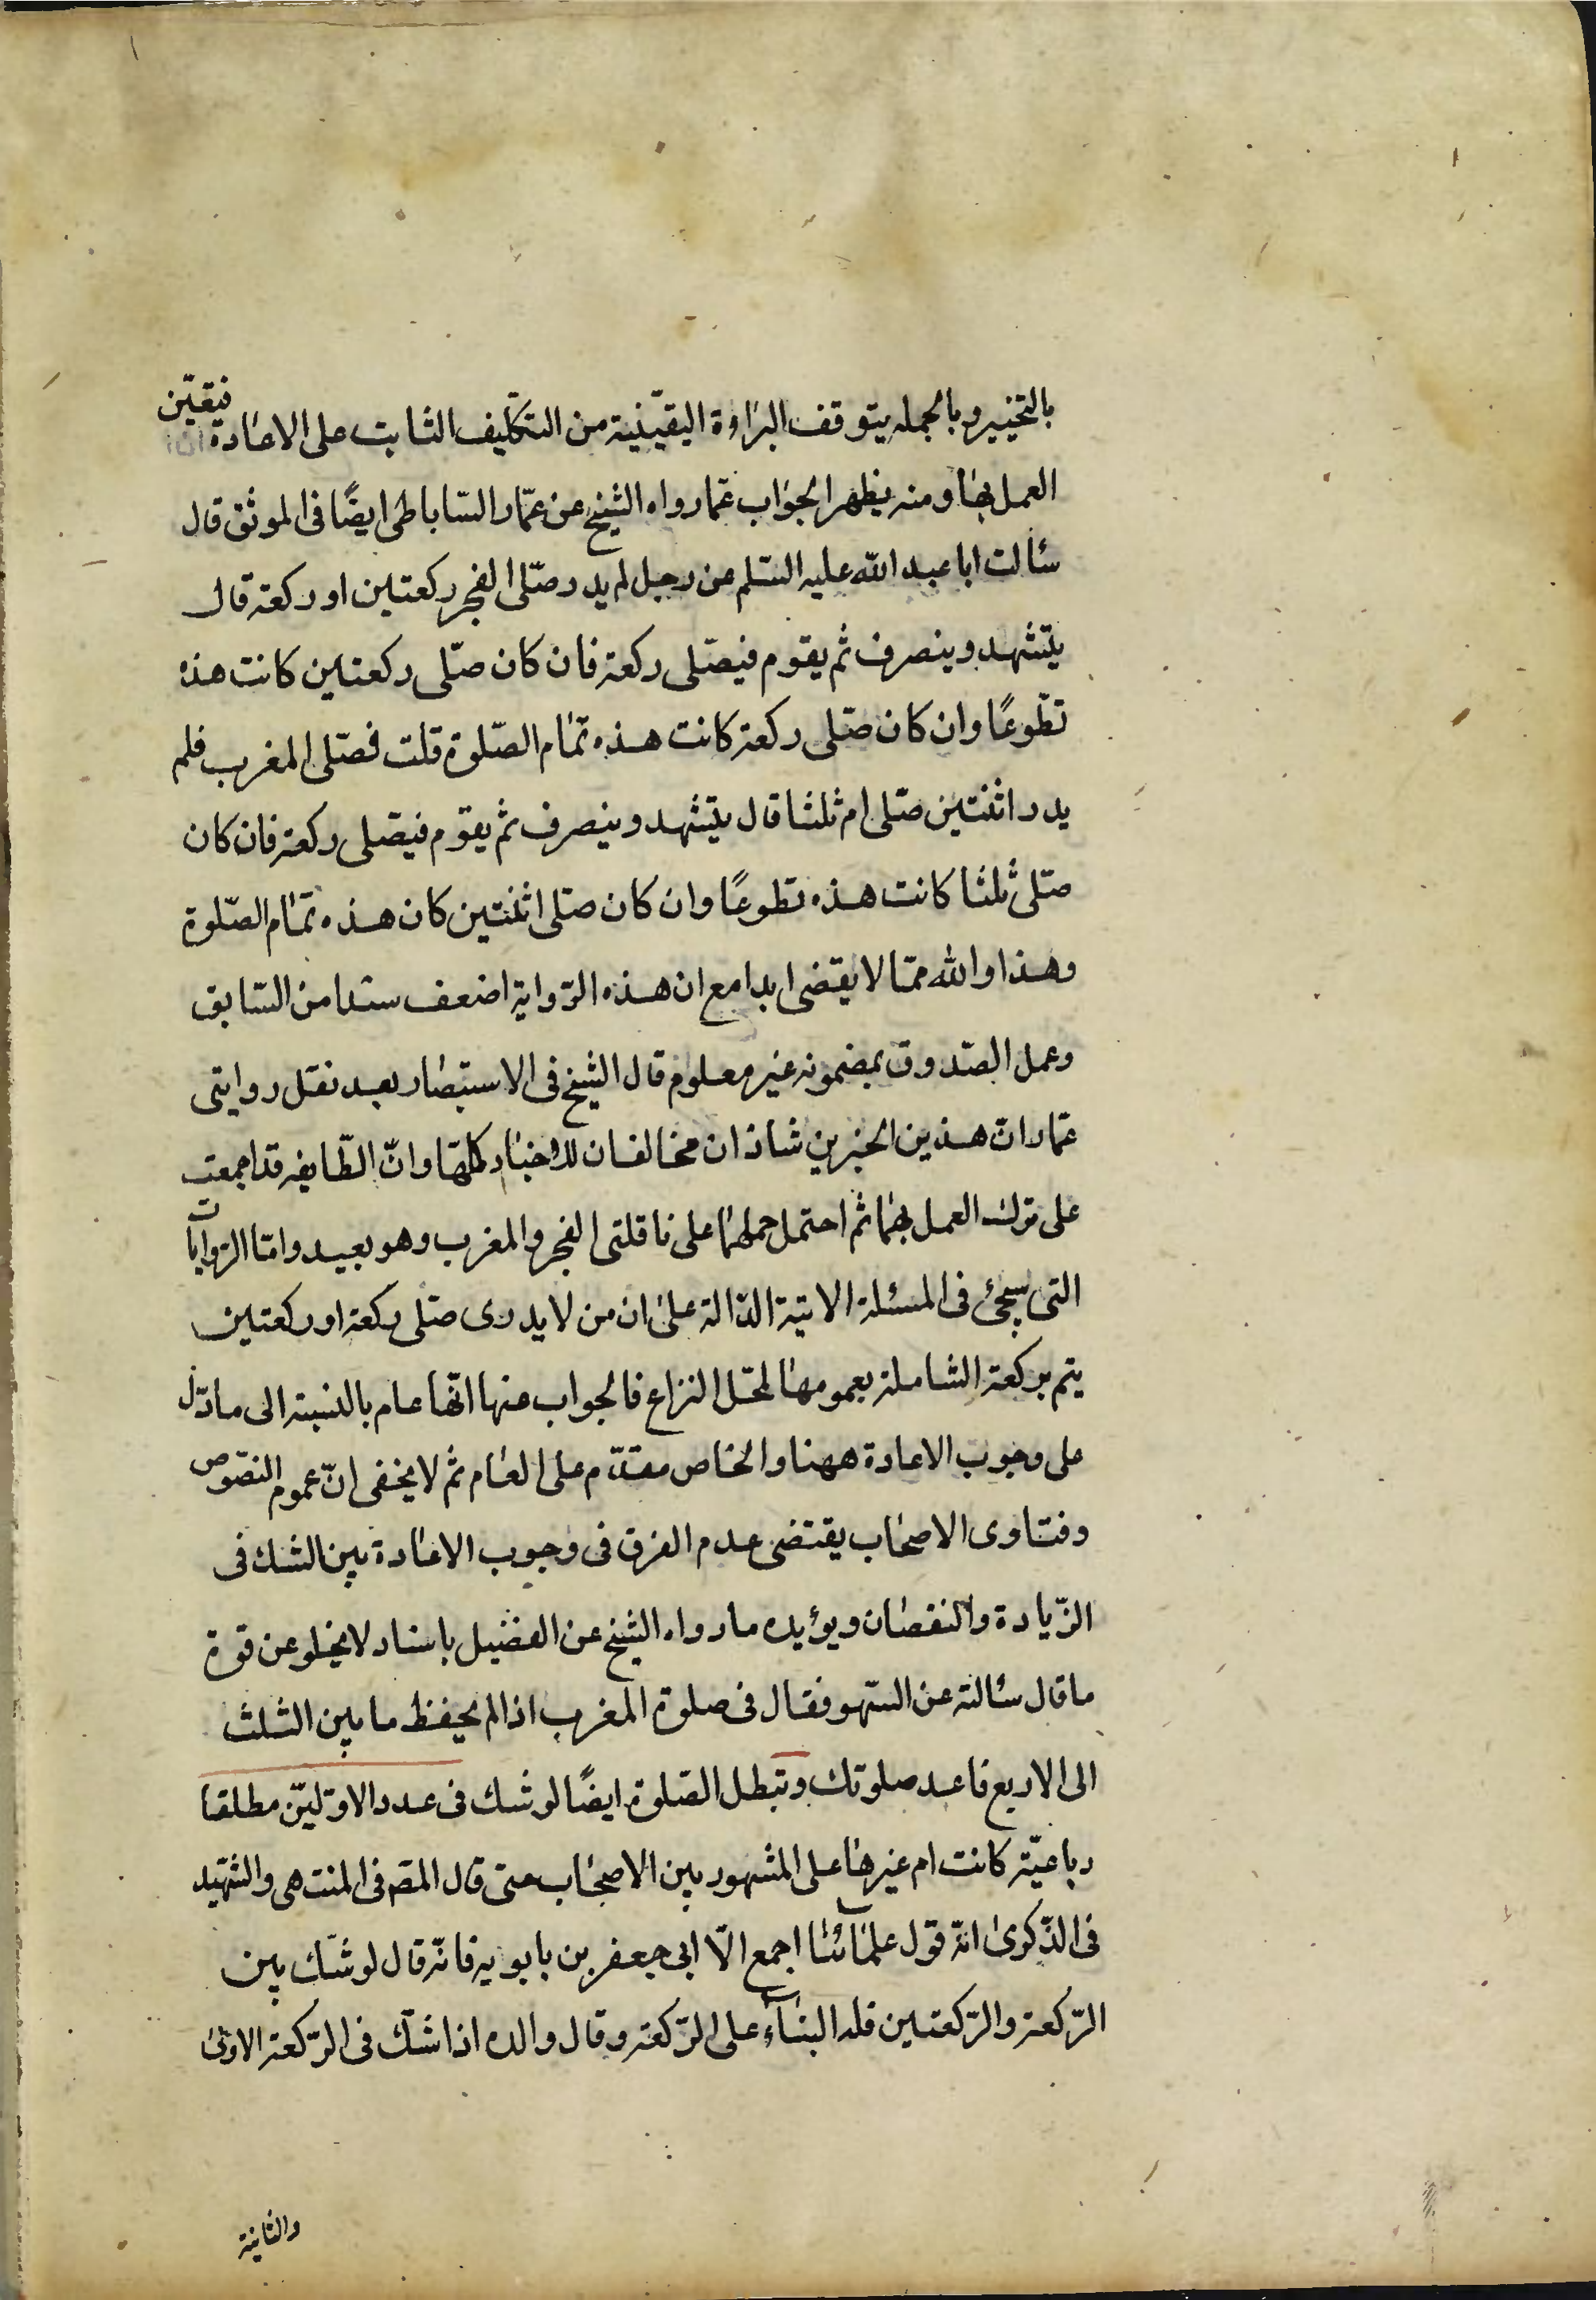 بالتخيير وبالجمله يتوقف البراءة اليقينية من التكليف الثابت على الاعادة فيقيّن
العمل بها ومنه يظهر الجواب عما رواه الشيخ عن عمّار الساباطى ايضًا فى الموثق قال
سئالت ابا عبد الله عليه السّلم عن رجل لم يدر صلّى الفجر ركعتين او ركعة قال
يتشهد وينصرف ثم يقوم فيصلى ركعة فان كان صلّى ركعتين كانت هذه
تطوعًا وان كان صلّى ركعة كانت هذه تمام الصّلوة قلت فصلى المغرب فلم
يدر اثنتين صلّى ام ثلثا قال يتشهد وينصرف ثم يقوم فيصلى ركعة فان كان
صلّى ثلثا كانت هذه تطوعًا وان كان صلى اثنتين كان هذه تمام الصّلوة
وهذا والله ممّا لا يقضى ابدا مع ان هذه الرّواية اضعف سندا من السّابق
وعمل الصّدوق بمضمونه غير معلوم قال الشيخ فى الاستبصار بعد نقل روايتى
عمّار انّ هذين الخبرين شاذان مخالفان للاخبار كلّها وانّ الطّايفه قد اجمعت
على ترك العمل بهما ثم احتمل حملهما على نافلتى الفجر والمغرب وهو بعيد وامّا الروايات
التى سيجئ فى المسئلة الاتية الدّالة على ان من لا يدرى صلّى ركعة او ركعتين
يتم بركعة الشاملة بعمومها لمحلّ النزاع فالجواب عنها انّها عام بالنسبة الى ما دلّ
على وجوب الاعادة ههنا والخاص مقدّم على العام ثم لا يخفى انّ عموم النصوص
وفتاوى الاصحاب يقتضى عدم الفرق فى وجوب الاعادة بين الشك فى
الزّيادة والنقصان ويؤيده ما رواه الشيخ عن الفضيل باسناد لا يخلو عن قوة
ما قال سئالته عن السّهو فقال فى صلوة المغرب اذا لم يحفظ ما بين الثلث
الى الاربع فاعد صلوتك وتبطل الصّلوة ايضًا لو شك فى عدد الاوّليّن مطلقا
رباعيّة كانت ام غيرها على المشهور بين الاصحاب حتى قال المصّ فى المنتهى والشّهيد
فى الذّكرى انّه قول علمائنا اجمع الّا ابى جعفر بن بابويه فانّه قال لو شكّ بين
الرّكعة والرّكعتين فله البناء على الرّكعة وقال والده اذا شكّ فى الرّكعة الاولى
والثانية